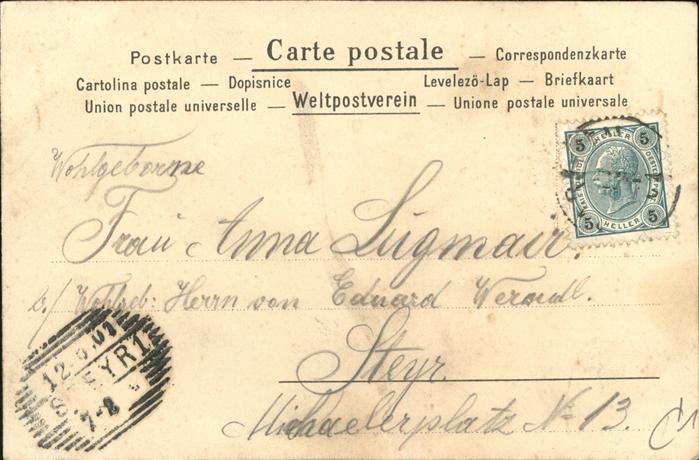 Postkarte — Carte postale — Correspondenzkarte
Cartolina postale — Dopisnice Levelező-Lap — Briefkaart
Union postale universelle — Weltpostverein — Unione postale universale
Wohlgeborne
Frau Anna Lugmair.
b./ Wohlgeb: Herrn von Eduard Werndl.
Steyr.
Michaelerplatz No 13.
5 HELLER 5
5 HELLER 5
12.
STEYR 1
7-8